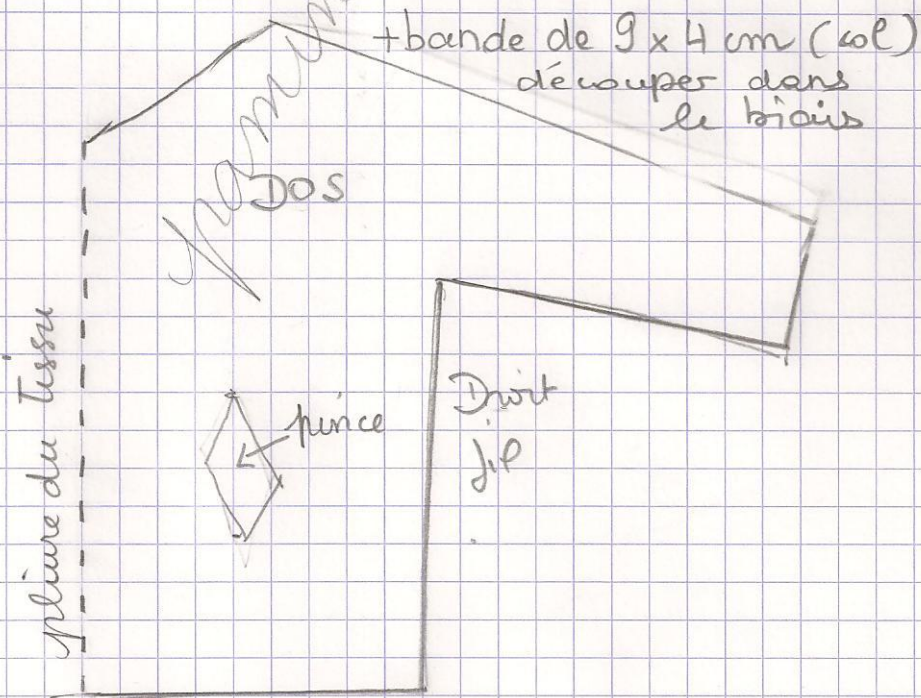 +bande de 9 x 4 cm (col)
découper dans
le biais
DOS
pliure du tissu
pince
Droit
fil